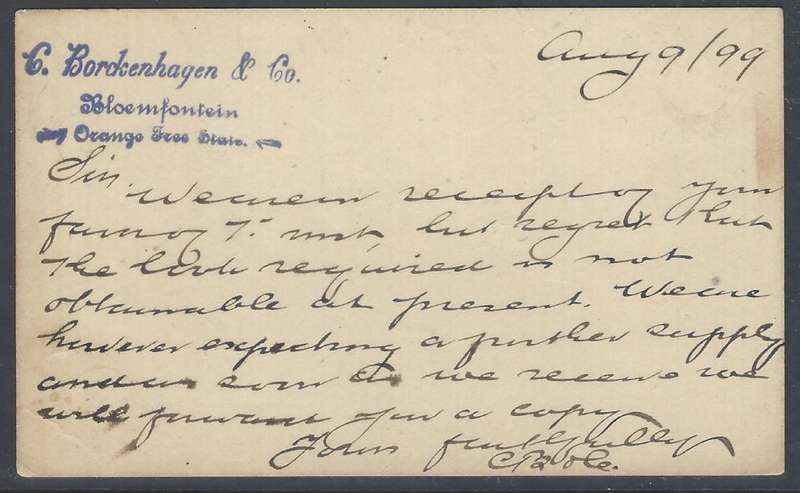 C. Borckenhagen & Co.
Bloemfontein
Orange Free State.
Aug 9/99
Sir.
We are in receipt of your
favor of 7th inst, but regret that
the book required is not
obtainable at present. We are
however expecting a further supply
and as soon as we receive we
will forward you a copy
Yours faithfully